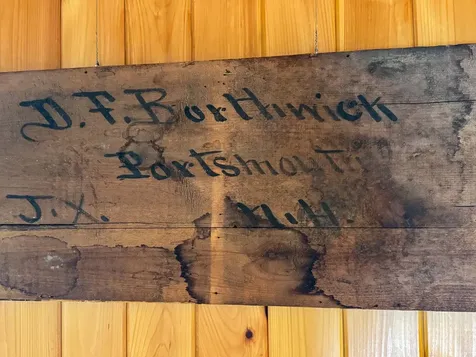 D. F. Borthwick
Portsmouth
J. X. N. H.